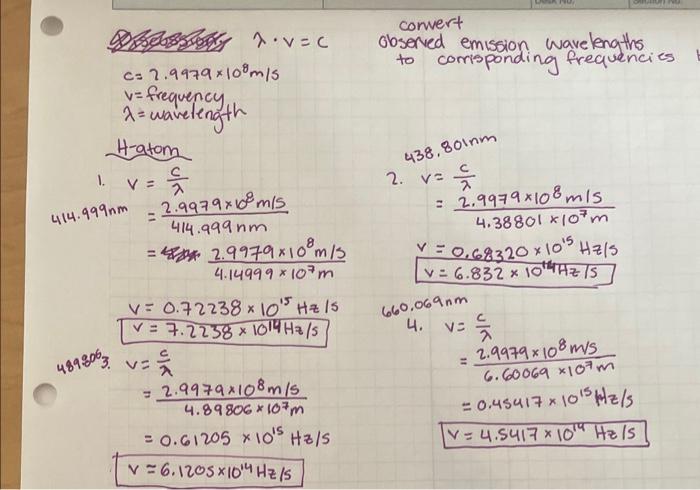 λ · ν = c
convert
observed emission wavelengths
to corresponding frequencies
c = 2.9979 × 10⁸ m/s
ν = frequency
λ = wavelength
H-atom
1. ν = c/λ
414.999nm
= 2.9979 × 10⁸ m/s / 414.999 nm
= 2.9979 × 10⁸ m/s / 4.14999 × 10⁷ m
ν = 0.72238 × 10¹⁵ Hz/s
ν = 7.2238 × 10¹⁴ Hz/s
438.801nm
2. ν = c/λ
= 2.9979 × 10⁸ m/s / 4.38801 × 10⁷ m
ν = 0.68320 × 10¹⁵ Hz/s
ν = 6.832 × 10¹⁴ Hz/s
489806
3. ν = c/λ
= 2.9979 × 10⁸ m/s / 4.89806 × 10⁷ m
= 0.61205 × 10¹⁵ Hz/s
ν = 6.1205 × 10¹⁴ Hz/s
660.069nm
4. ν = c/λ
= 2.9979 × 10⁸ m/s / 6.60069 × 10⁷ m
= 0.45417 × 10¹⁵ Hz/s
ν = 4.5417 × 10¹⁴ Hz/s